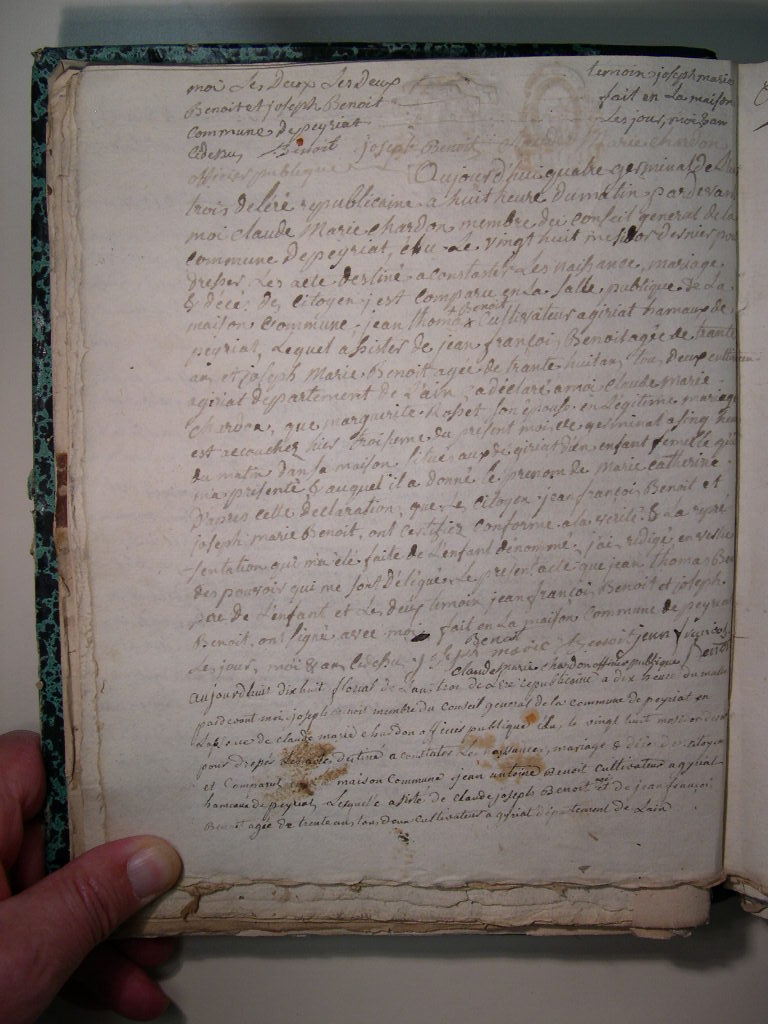 moi Les Deux Les Deux temoin joseph marie
Benoit et joseph Benoit fait en La maison
Commune de peyriat Les jour, moi & an
Cidesus Benoit joseph Benoit Marie chardon
officier publique
Aujourd'huit quatre germinal de L'an
trois de Léré republicaine a huit heure du matin par devan
moi Claude Marie chardon membre du Conseil general de la
Commune de peyriat, élu Le vingt huit mesidor dernier pou
dresser Les acte destiné a constater Les naissance, mariage
& décé des Citoyen, est comparu en La salle publique de La
maison Commune jean thomas Benoit Cultivateur a giriat hamau de
peyriat, Lequel assister de jean françois Benoit agée de trante
an et joseph Marie Benoit agée de trante huit an, tou deux cultivateur
a giriat departement de L'ain, a déclaré a moi Claude Marie
Chardon, que marguerite Rosset son épouse en Légitime mariage
est acouchez hier troisieme du present mois de germinal a sinq heure
du matin dans sa maison située audi giriat d'un enfant femelle qu'il
ma présenté & auquel il a donné le prenom de Marie Catherine
D'apres celle déclaration, que le Citoyen jean françois Benoit et
joseph marie Benoit, ont certifiez conforme a la verité & La repré
sentation qui m'a été faite de L'enfant dénommé, j'ai rédigé en vertu
des pouvoir qui me sont Délégué, Le present acte que jean thomas Be
pere de L'enfant et Les deux temoin jean françoi Benoit et joseph
Benoit, ont signé avec moi, fait en La maison Commune de peyriat
Les jour, moi & an Cidesus Benoit joseph marie Benoit jean françois
Claude marie chardon officier publique Benoit
aujourd'huis dix huit floreal de L'an troi de L'ere republicaine a dix heure du matin
pardevant moi joseph membre du Conseil general de la commune de peyriat en
de Claude marie chardon officier publique élu, le vingt huit mesidor
pour dresser Les acte destiné a constater Les naissance, mariage & décé des Citoyen
et Comparu en La maison Commune jean antoine Benoit Cultivateur a gyriat
hameau de peyriat, Lequelle asisté de Claude joseph Benoit et de jean françoi
Benoit agée de trente an, tou deux Cultivateur a gyriat département de L'ain